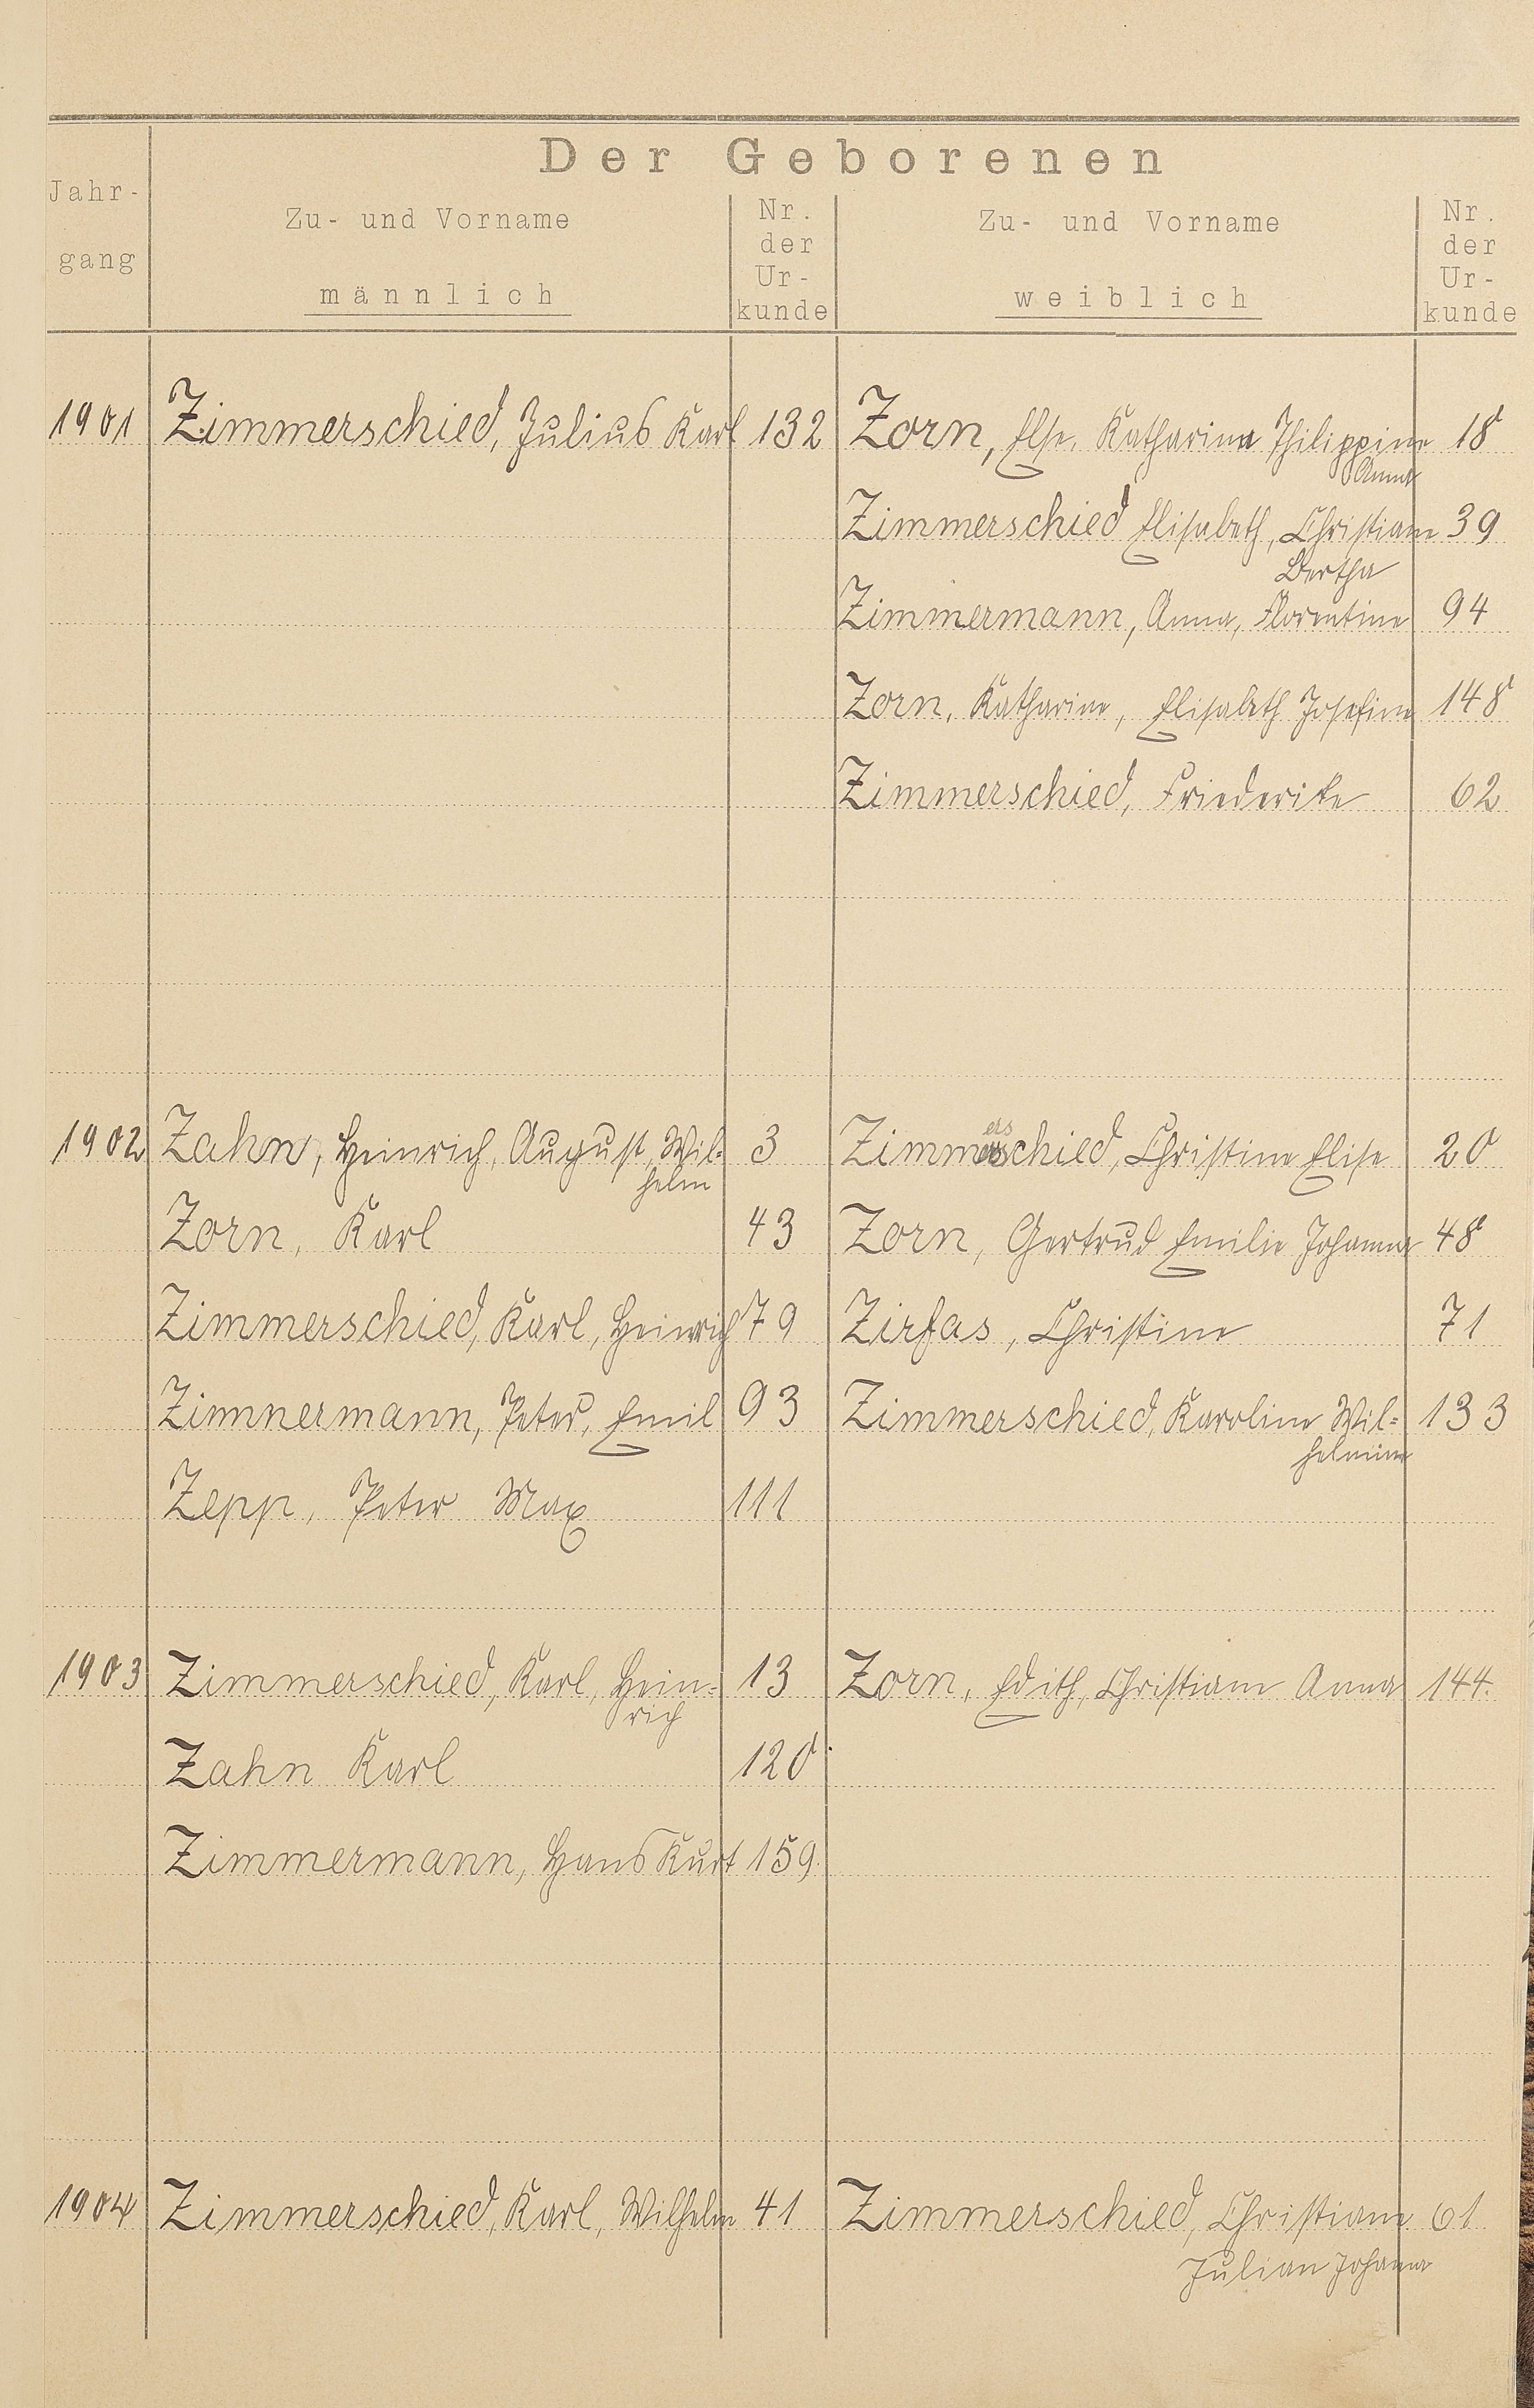 Der Geborenen
Jahr-
gang
Zu- und Vorname
männlich
Nr.
der
Ur-
kunde
Zu- und Vorname
weiblich
Nr.
der
Ur-
kunde
1901 Zimmerschied, Julius Karl 132 Zorn, Else, Katharina Philippine 18
Anna
Zimmerschied Elisabeth, Christiane 39
Bertha
Zimmermann, Anna, Florentine 94
Zorn, Katharine, Elisabeth Josefine 148
Zimmerschied, Friederike 62
1902 Zahn, Heinrich, August, Wil= 3 Zimmerschied, Christine Elise 20
ers
helm
Zorn, Karl 43 Zorn, Gertrud Emilie Johanna 48
Zimmerschied, Karl, Heinrich 79 Zirfas, Christine 71
Zimmermann, Peter, Emil 93 Zimmerschied, Karoline Wil= 133
helmine
Zepp, Peter Max 111
1903 Zimmerschied, Karl, Hein= 13 Zorn, Edith, Christiane Anna 144.
rich
Zahn Karl 120
Zimmermann, Hans Kurt 159
1904 Zimmerschied, Karl, Wilhelm 41 Zimmerschied, Christiane 61
Juliane Johanna